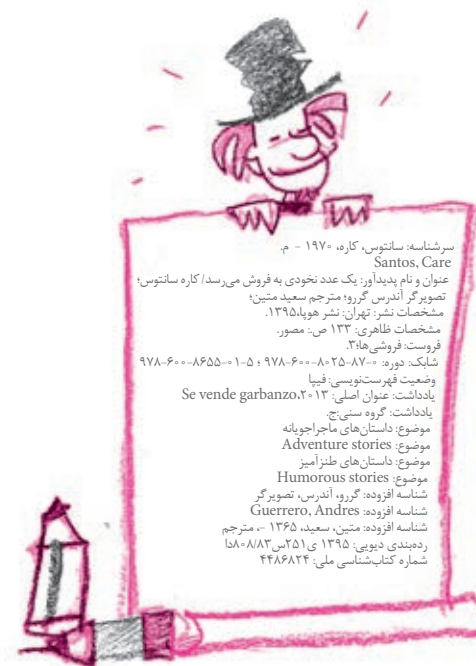 سرشناسه: سانتوس، کاره، ۱۹۷۰ - م.
Santos, Care
عنوان و نام پدیدآور: یک عدد نخودی به فروش می‌رسد/ کاره سانتوس؛
تصویرگر آندرس گررو؛ مترجم سعید متین؛
مشخصات نشر: تهران: نشر هوپا،۱۳۹۵.
مشخصات ظاهری: ۱۳۳ ص.: مصور.
فروست: فروشی‌ها؛۳.
شابک: دوره: ۰-۸۷-۸۰۲۵-۶۰۰-۹۷۸ ؛ ۵-۰۱-۸۶۵۵-۶۰۰-۹۷۸
وضعیت فهرست‌نویسی: فیپا
یادداشت: عنوان اصلی: Se vende garbanzo،۲۰۱۳.
یادداشت: گروه سنی:ج.
موضوع: داستان‌های ماجراجویانه
موضوع: Adventure stories
موضوع: داستان‌های طنزآمیز
موضوع: Humorous stories
شناسه افزوده: گررو، آندرس، تصویرگر
شناسه افزوده: Guerrero, Andres
شناسه افزوده: متین، سعید، ۱۳۶۵ -، مترجم
رده‌بندی دیویی: ۱۳۹۵ ی۲۵۱س۸۰۸/۸۳دا
شماره کتاب‌شناسی ملی: ۴۴۸۶۸۲۴